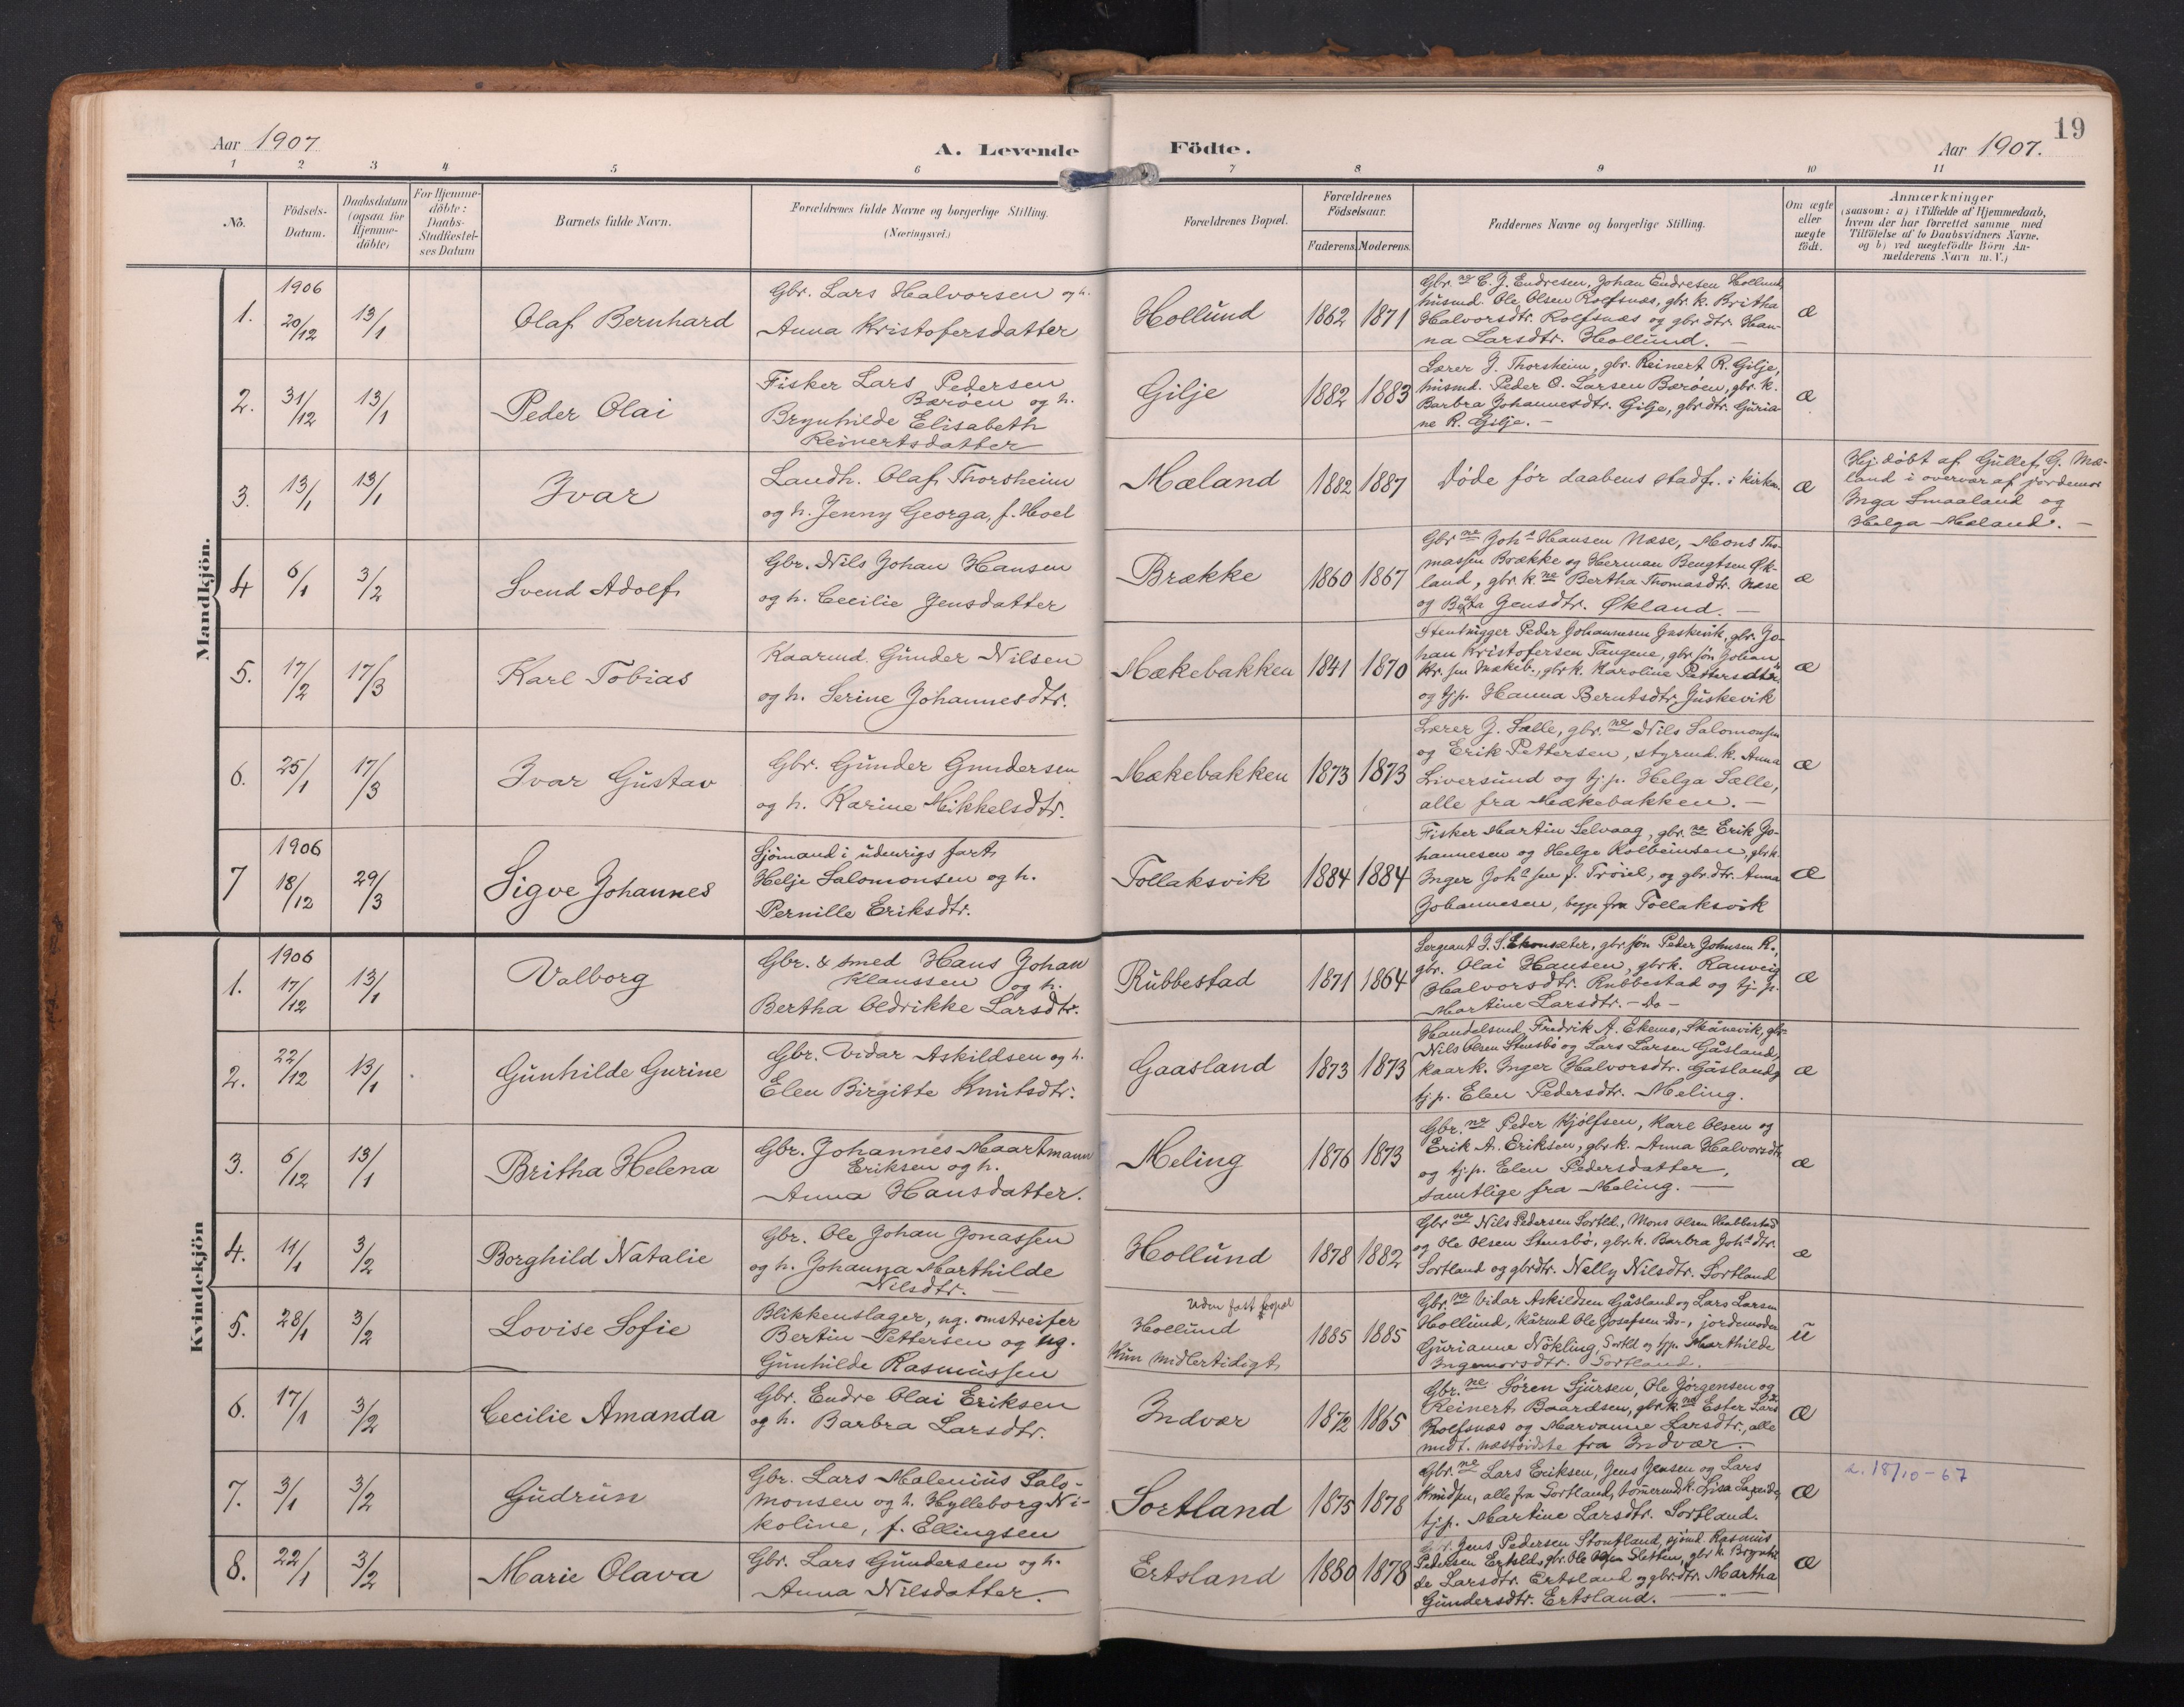 19
Aar 1907
A. Levende Födte.
Aar 1907.
1 2 3 4 5 6 7 8 9 10 11
No.
Födsels-
Datum.
Daabsdatum
(ogsaa for
Hjemme-
döbte)
For Hjemme-
döbte:
Daabs-
Stadfæstel-
ses Datum
Barnets fulde Navn.
Forældrenes fulde Navne og borgerlige Stilling.
(Næringsvei.)
Forældrenes Bopæl.
Forældrenes
Födselsaar.
Faderens. Moderens.
Faddernes Navne og borgerlige Stilling.
Om ægte
eller
uægte
födt.
Anmærkninger
(saasom: a) i Tilfælde af Hjemmedaab,
hvem der har forrettet samme med
Tilföielse af to Daabsvidners Navne.
og b) ved uægtefödte Börn An-
melderens Navn m. V.)
Mandkjön.
1. 1906 20/12 13/1 Olaf Bernhard
Gbr. Lars Halvorsen og h.
Anna Kristofersdatter
Hollund 1862 1871
Gbr.ne C. J. Endresen, Johan Endresen Hollund,
husmd. Ole Olsen Rolfsnæs, gbr. k. Britha
Halvorsdtr. Rolfsnæs og gbr dtr. Han-
na Larsdtr. Hollund. —
æ
2. 31/12 13/1 Peder Olai
Fisker Lars Pedersen
Bærøen og h.
Brynhilde Elisabeth
Reinertsdatter
Gilje 1882 1883
Lærer J. Thorsheim, gbr. Reinert R. Gilje,
husmd. Peder O. Larsen Bærøen, gbr. k.
Barbra Johannesdtr. Gilje, gbr dtr. Guria-
ne R. Gilje. —
æ
3. 13/1 13/1 Ivar
Landh. Olaf Thorsheim
og h. Jenny Georga, f. Hoel
Mæland 1882 1887
Døde før daabens stadf. i kirken.
æ
Hj. døbt af Gullef G. Mæ-
land i overvær af jordemor
Inga Smaaland og
Helga Mæland. —
4 6/1 3/2 Svend Adolf
Gbr. Nils Johan Hansen
og h. Cecilie Jensdatter
Brække 1860 1867
Gbr ne Johs Hansen Næse, Mons Tho-
massen Brække og Herman Bengtsen Øk-
land, gbr. k. ne Bertha Thomasdtr. Næse
og Beata Jensdtr. Økland. —
æ
5. 17/2 17/3 Karl Tobias
Kaarmd. Gunder Nilsen
og h. Serine Johannesdtr.
Mækebakken 1841 1870
Stenhugger Peder Johannesen Juskevik, gbr. Jo-
han Kristofersen Tangene, gbr søn Johan
Kr. sen Mækeb., gbr k. Karoline Pettersdtr.
og tj. p. Hanna Berntsdtr. Juskevik
æ
6. 25/1 17/3 Ivar Gustav
Gbr. Gunder Gundersen
og h. Karine Mikkelsdtr.
Mækebakken 1873 1873
Lærer J. Sælle, gbr. ne Nils Salomonsen
og Erik Pettersen, styrmd. k. Anna
Siversund og tj. p. Helga Sælle,
alle fra Mækebakken. —
æ
7 1906 18/12 29/3 Sigve Johannes
Sjömand i udenrigs fart
Helje Salomonsen og h.
Pernille Eriksdtr.
Tollaksvik 1884 1884
Fisker Martin Selvaag, gbr. ne Erik Jo-
hannesen og Helge Kolbeinsen, gbr k.
Inger Johs sen f. Trøiel, og gbr. dtr. Anna
Johannesen, begge fra Tollaksvik
æ
Kvindekjön
1. 1906 17/12 13/1 Valborg
Gbr. & smed Hans Johan
Klaussen og h.
Bertha Oldrikke Larsdtr.
Rubbestad 1871 1864
Sergeant J. S. Ekornsæter, gbr søn Peder Johnsen R.,
gbr. Olai Hansen, gbr k. Ranveig
Halvorsdtr. Rubbestad og tj. p.
Martine Larsdtr. — Do —
æ
2. 22/12 13/1 Gunhilde Gurine
Gbr. Vidar Askildsen og h.
Elen Birgitte Knutsdtr.
Gaasland 1873 1873
Handelsmd. Fredrik A. Ekenes, Skånevik, gbr
Nils Olsen Stensbø og Lars Larsen Gåsland,
kaark. Inger Halvorsdtr. Gåsland og
tj. p. Elen Pedersdtr. Meling.
æ
3. 6/12 13/1 Britha Helena
Gbr. Johannes Maartmann
Eriksen og h.
Anna Hansdatter.
Meling 1876 1873
Gbr. ne Peder Kjölfsen, Karl Olsen og
Erik A. Eriksen, gbr k. Anna Halvorsdtr
og tj. p. Elen Pedersdatter,
samtlige fra Meling. —
æ
4. 11/1 3/2 Borghild Natalie
Gbr. Ole Johan Jonassen
og h. Johanna Marthilde
Nilsdtr. —
Hollund 1878 1882
Gbr ne Nils Pedersen Sortld., Mons Olsen Habbestad
og Ole Olsen Stensbö, gbr. k. Barbra Johs dtr.
Sortland og gbr dtr. Nelly Nilsdtr. Sortland
æ
5. 28/1 3/2 Lovise Sofie
Blikkenslager, ug. omstreifer
Bertin Pettersen og ug.
Gunhilde Rasmussen
Uden fast bopæl
Hollund
kun midlertidigt
1885 1885
Gbr. ne Vidar Askildsen Gåsland og Lars Larsen
Hollund, kårmd Ole Josefsen — Do —, jordemoder
Gurianne Nökling, Sortld og tj. p. Marthilde
Ingemorsdtr. Sortland.
u
6. 17/1 3/2 Cecilie Amanda
Gbr. Endre Olai Eriksen
og h. Barbra Larsdtr.
Indvær 1872 1865
Gbr. ne Sören Sjursen, Ole Jörgensen og
Reinert Baardsen, gbr. k. ne Ester Larsdtr
Rolfsnæs og Marvanne Larsdtr., alle
undt. næstsidste fra Indvær. —
æ
7. 3/1 3/2 Gudrun
Gbr. Lars Malenius Salo-
monsen og h. Hylleborg Ni-
koline, f. Ellingsen
Sortland 1875 1878
Gbr. ne Lars Eriksen, Jens Jensen og Lars
Knudsen, alle fra Sortland, tömermd. k. Lisa
tj. p. Martine Larsdtr. Sortland.
æ
18/10-67
8. 22/1 3/2 Marie Olava
Gbr. Lars Gundersen og h.
Anna Nilsdatter.
Ertsland 1880 1878
Jens Pedersen Stoutland, sjömd. Rasmus
Pedersen Ertsld, gbr. Ole Olsen Sletten, gbr. k. Brynhil-
de Larsdtr. Ertsland og gbr. dtr. Martha
Gundersdtr. Ertsland. —
æ